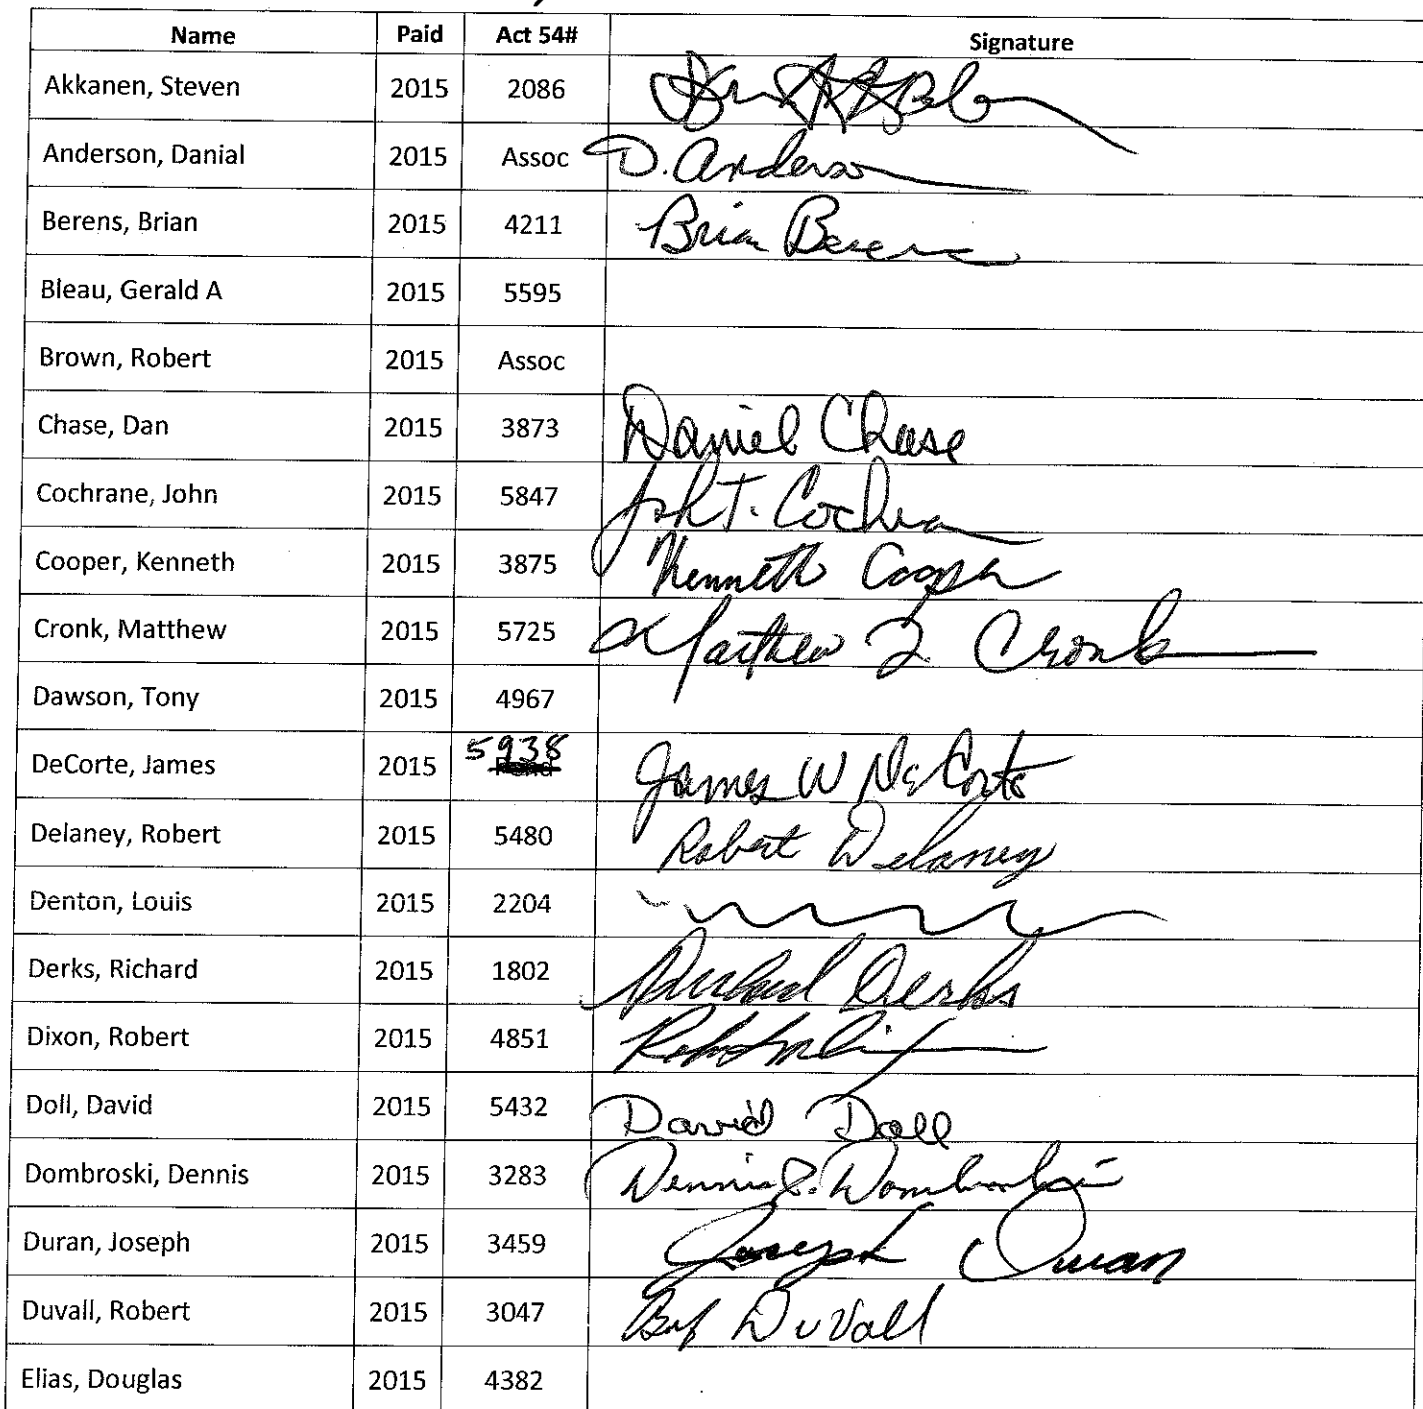 Name Paid Act 54# Signature
Akkanen, Steven 2015 2086
Anderson, Danial 2015 Assoc D. Anderson
Berens, Brian 2015 4211 Brian Berens
Bleau, Gerald A 2015 5595
Brown, Robert 2015 Assoc
Chase, Dan 2015 3873 Daniel Chase
Cochrane, John 2015 5847 John T. Cochran
Cooper, Kenneth 2015 3875 Kenneth Cooper
Cronk, Matthew 2015 5725 Matthew J Cronk
Dawson, Tony 2015 4967
DeCorte, James 2015 5938 James W DeCorte
Delaney, Robert 2015 5480 Robert Delaney
Denton, Louis 2015 2204
Derks, Richard 2015 1802 Richard Derks
Dixon, Robert 2015 4851
Doll, David 2015 5432 David Doll
Dombroski, Dennis 2015 3283 Dennis Dombroski
Duran, Joseph 2015 3459 Joseph Duran
Duvall, Robert 2015 3047 Bob DuVall
Elias, Douglas 2015 4382